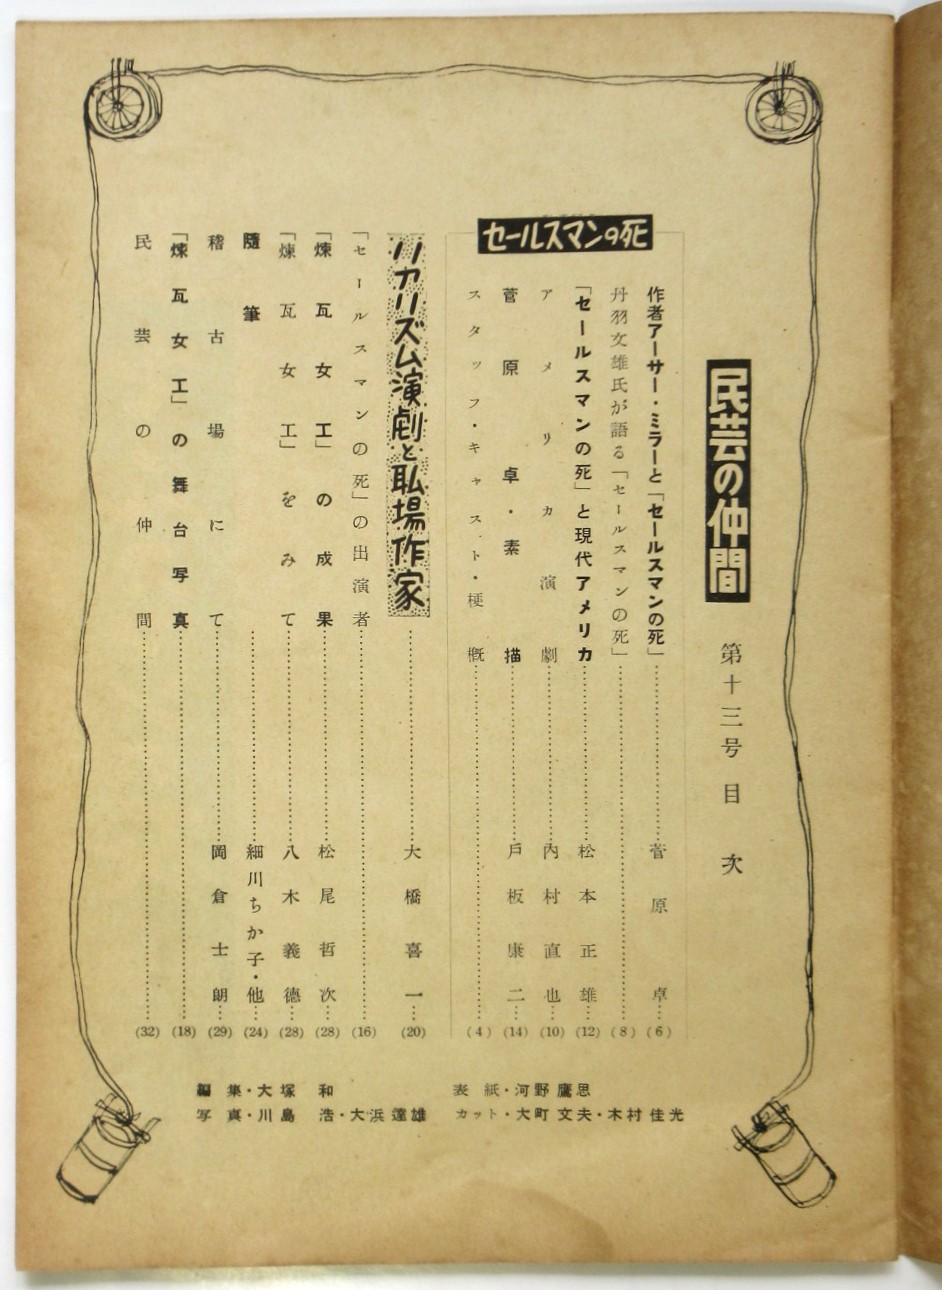 民芸の仲間 第十三号 目次
セールスマンの死
作者アーサー・ミラーと「セールスマンの死」……菅原卓……(6)
丹羽文雄氏が語る「セールスマンの死」……(8)
「セールスマンの死」と現代アメリカ……松本正雄……(12)
アメリカ演劇……内村直也……(10)
菅原卓・素描……戸板康二……(14)
スタッフ・キャスト・梗概……(4)
リアリズム演劇と職場作家……大橋喜一……(20)
「セールスマンの死」の出演者……(16)
「煉瓦女工」の成果……松尾哲次……(28)
「煉瓦女工」をみて……八木義徳……(28)
随筆……細川ちか子・他……(24)
稽古場にて……岡倉士朗……(29)
「煉瓦女工」の舞台写真……(18)
民芸の仲間……(32)
表紙・河野鷹思
カット・大町文夫・木村佳光
編集・大塚和
写真・川島浩・大浜達雄